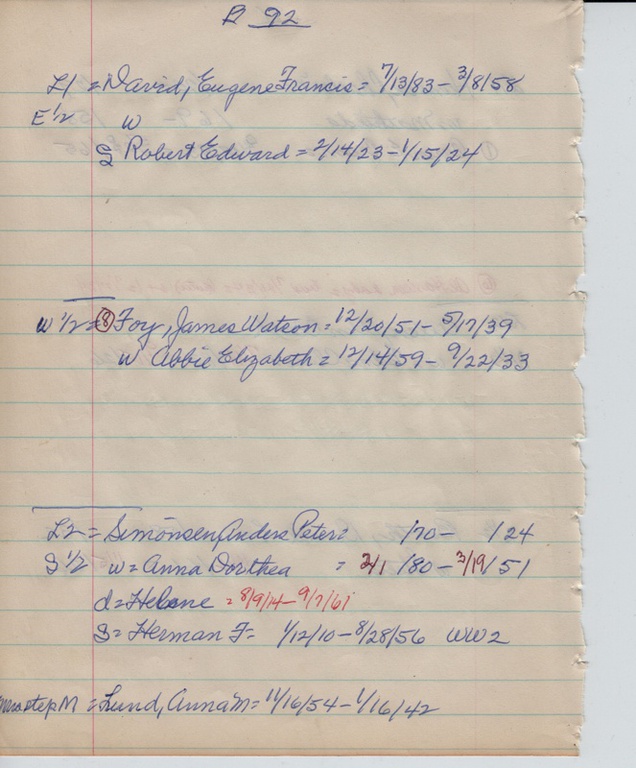 B 92
L1 = David, Eugene Francis = 7/13/83 - 3/8/58
E 1/2 W
S Robert Edward = 2/14/23 - 1/15/24
W 1/2 = 8 Foy, James Watson = 12/20/51 - 5/17/39
W Abbie Elizabeth = 12/14/59 - 9/22/33
L2 = Simonsen, Anders Peter = /70 - /24
S 1/2 W = Anna Dorthea = 2/1/80 - 3/19/51
d = Helene = 8/9/14 - 9/7/61
S = Herman F = 1/12/10 - 8/28/56 WW2
step M = Lund, Anna M = 11/16/54 - 1/16/42